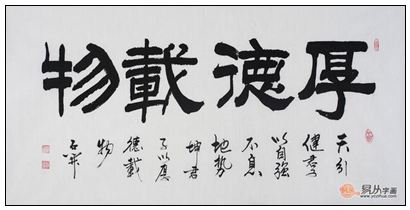 厚德載物
天行
健君子
以自強
不息
地勢
坤君
子以厚
德載
物
石開
易从字画
www.yizihua.com